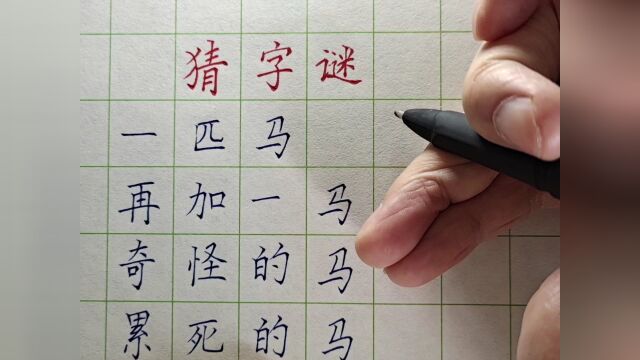 猜字谜
一匹马
再加一马
奇怪的马
累死的马